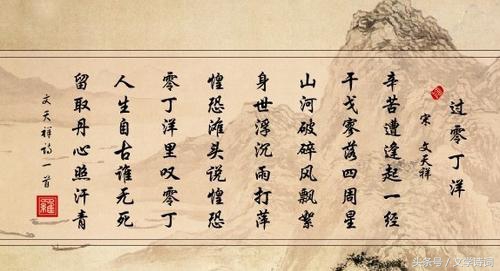 过零丁洋
宋 文天祥
辛苦遭逢起一经
干戈寥落四周星
山河破碎风飘絮
身世浮沉雨打萍
惶恐滩头说惶恐
零丁洋里叹零丁
人生自古谁无死
留取丹心照汗青
文天祥诗一首
羅
头条号/文学诗词